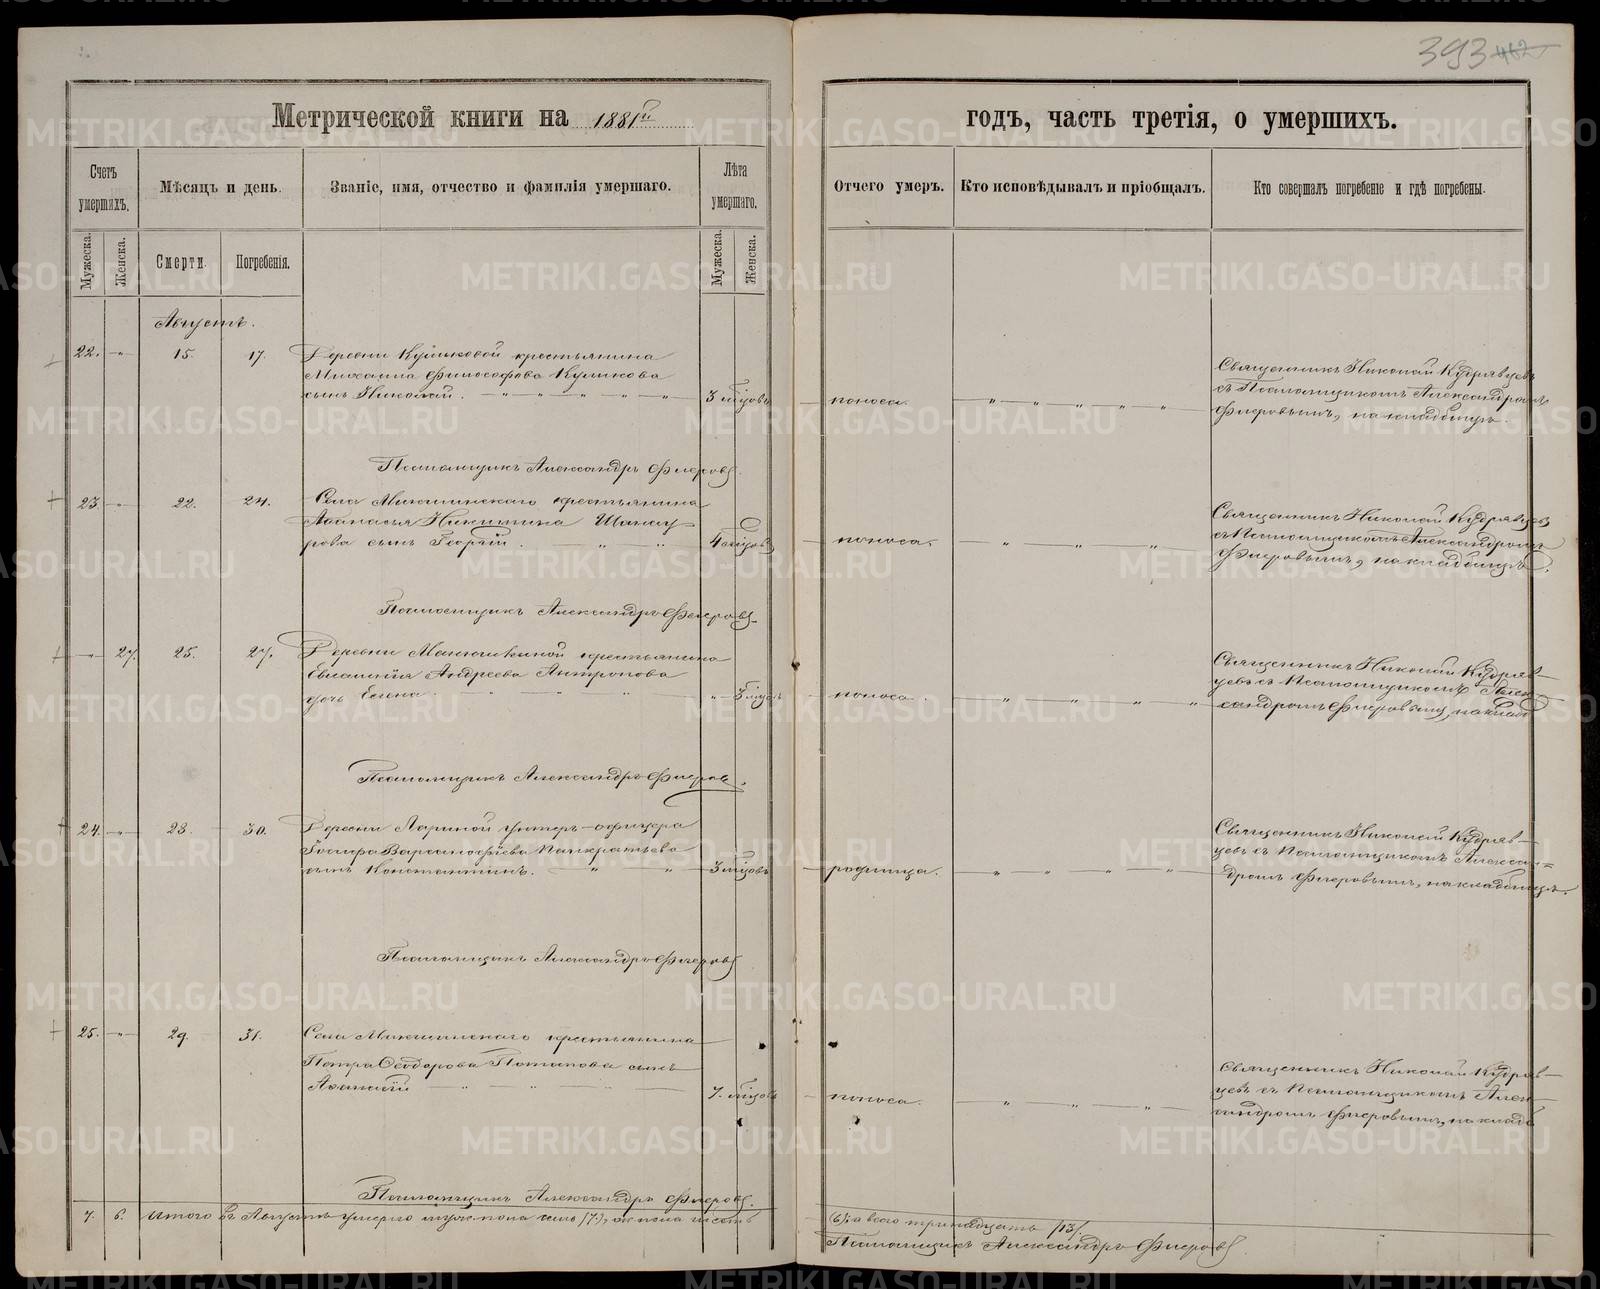 393 462
Метрической книги на 1881й
годъ, часть третія, о умершихъ.
Счетъ умершихъ.
Мѣсяцъ и день.
Званіе, имя, отчество и фамилія умершаго.
Лѣта умершаго.
Отчего умеръ.
Кто исповѣдывалъ и пріобщалъ.
Кто совершалъ погребеніе и гдѣ погребены.
Мужеска.
Женска.
Смерти.
Погребенія.
Мужеска.
Женска.
Августъ.
22. 15. 17.
Деревни Куликовой крестьянина
Михаила Философова Куликова
сынъ Николай.
3 мѣсцовъ
поноса.
Священникъ Николай Кудрявцевъ
съ Псаломщикомъ Александромъ
Фигеровымъ, на кладбищѣ.
Псаломщикъ Александръ Фигеровъ.
23. 22. 24.
Села крестьянина
Аѳанасья Никитина
сынъ Георгій.
4 мѣсцовъ
поноса.
Священникъ Николай Кудрявцевъ
съ Псаломщикомъ Александромъ
Фигеровымъ, на кладбищѣ.
Псаломщикъ Александръ Фигеровъ.
27. 25. 27.
Деревни крестьянина
Евсигнія Андреева Антропова
дочь Елена
3 мѣсцъ
поноса.
Священникъ Николай Кудряв-
цевъ съ Псаломщикомъ Алек
сандромъ Фигеровымъ, на кладб
Псаломщикъ Александръ Фигеровъ.
24. 28. 30.
Деревни Лариной унтеръ-офицера
Іосифа Варсанофіева Панкратьева
сынъ Константинъ.
3 мѣсцовъ
родимца.
Священникъ Николай Кудряв-
цевъ съ Псаломщикомъ Алексан-
дромъ Фигеровымъ, на кладбищѣ.
Псаломщикъ Александръ Фигеровъ
25. 29. 31.
Села крестьянина
Петра Ѳеодорова Потапова сынъ
7. мѣсцовъ
поноса.
Священникъ Николай Кудряв-
цевъ съ Псаломщикомъ Алек-
сандромъ Фигеровымъ, на кладб
Псаломщикъ Александръ Фигеровъ.
7. 6. Итого въ Августѣ умерло мужеска пола семь (7), женска пола шесть
(6), а всего тринадцать (13).
Псаломщикъ Александръ Фигеровъ
METRIKI.GASO-URAL.RU